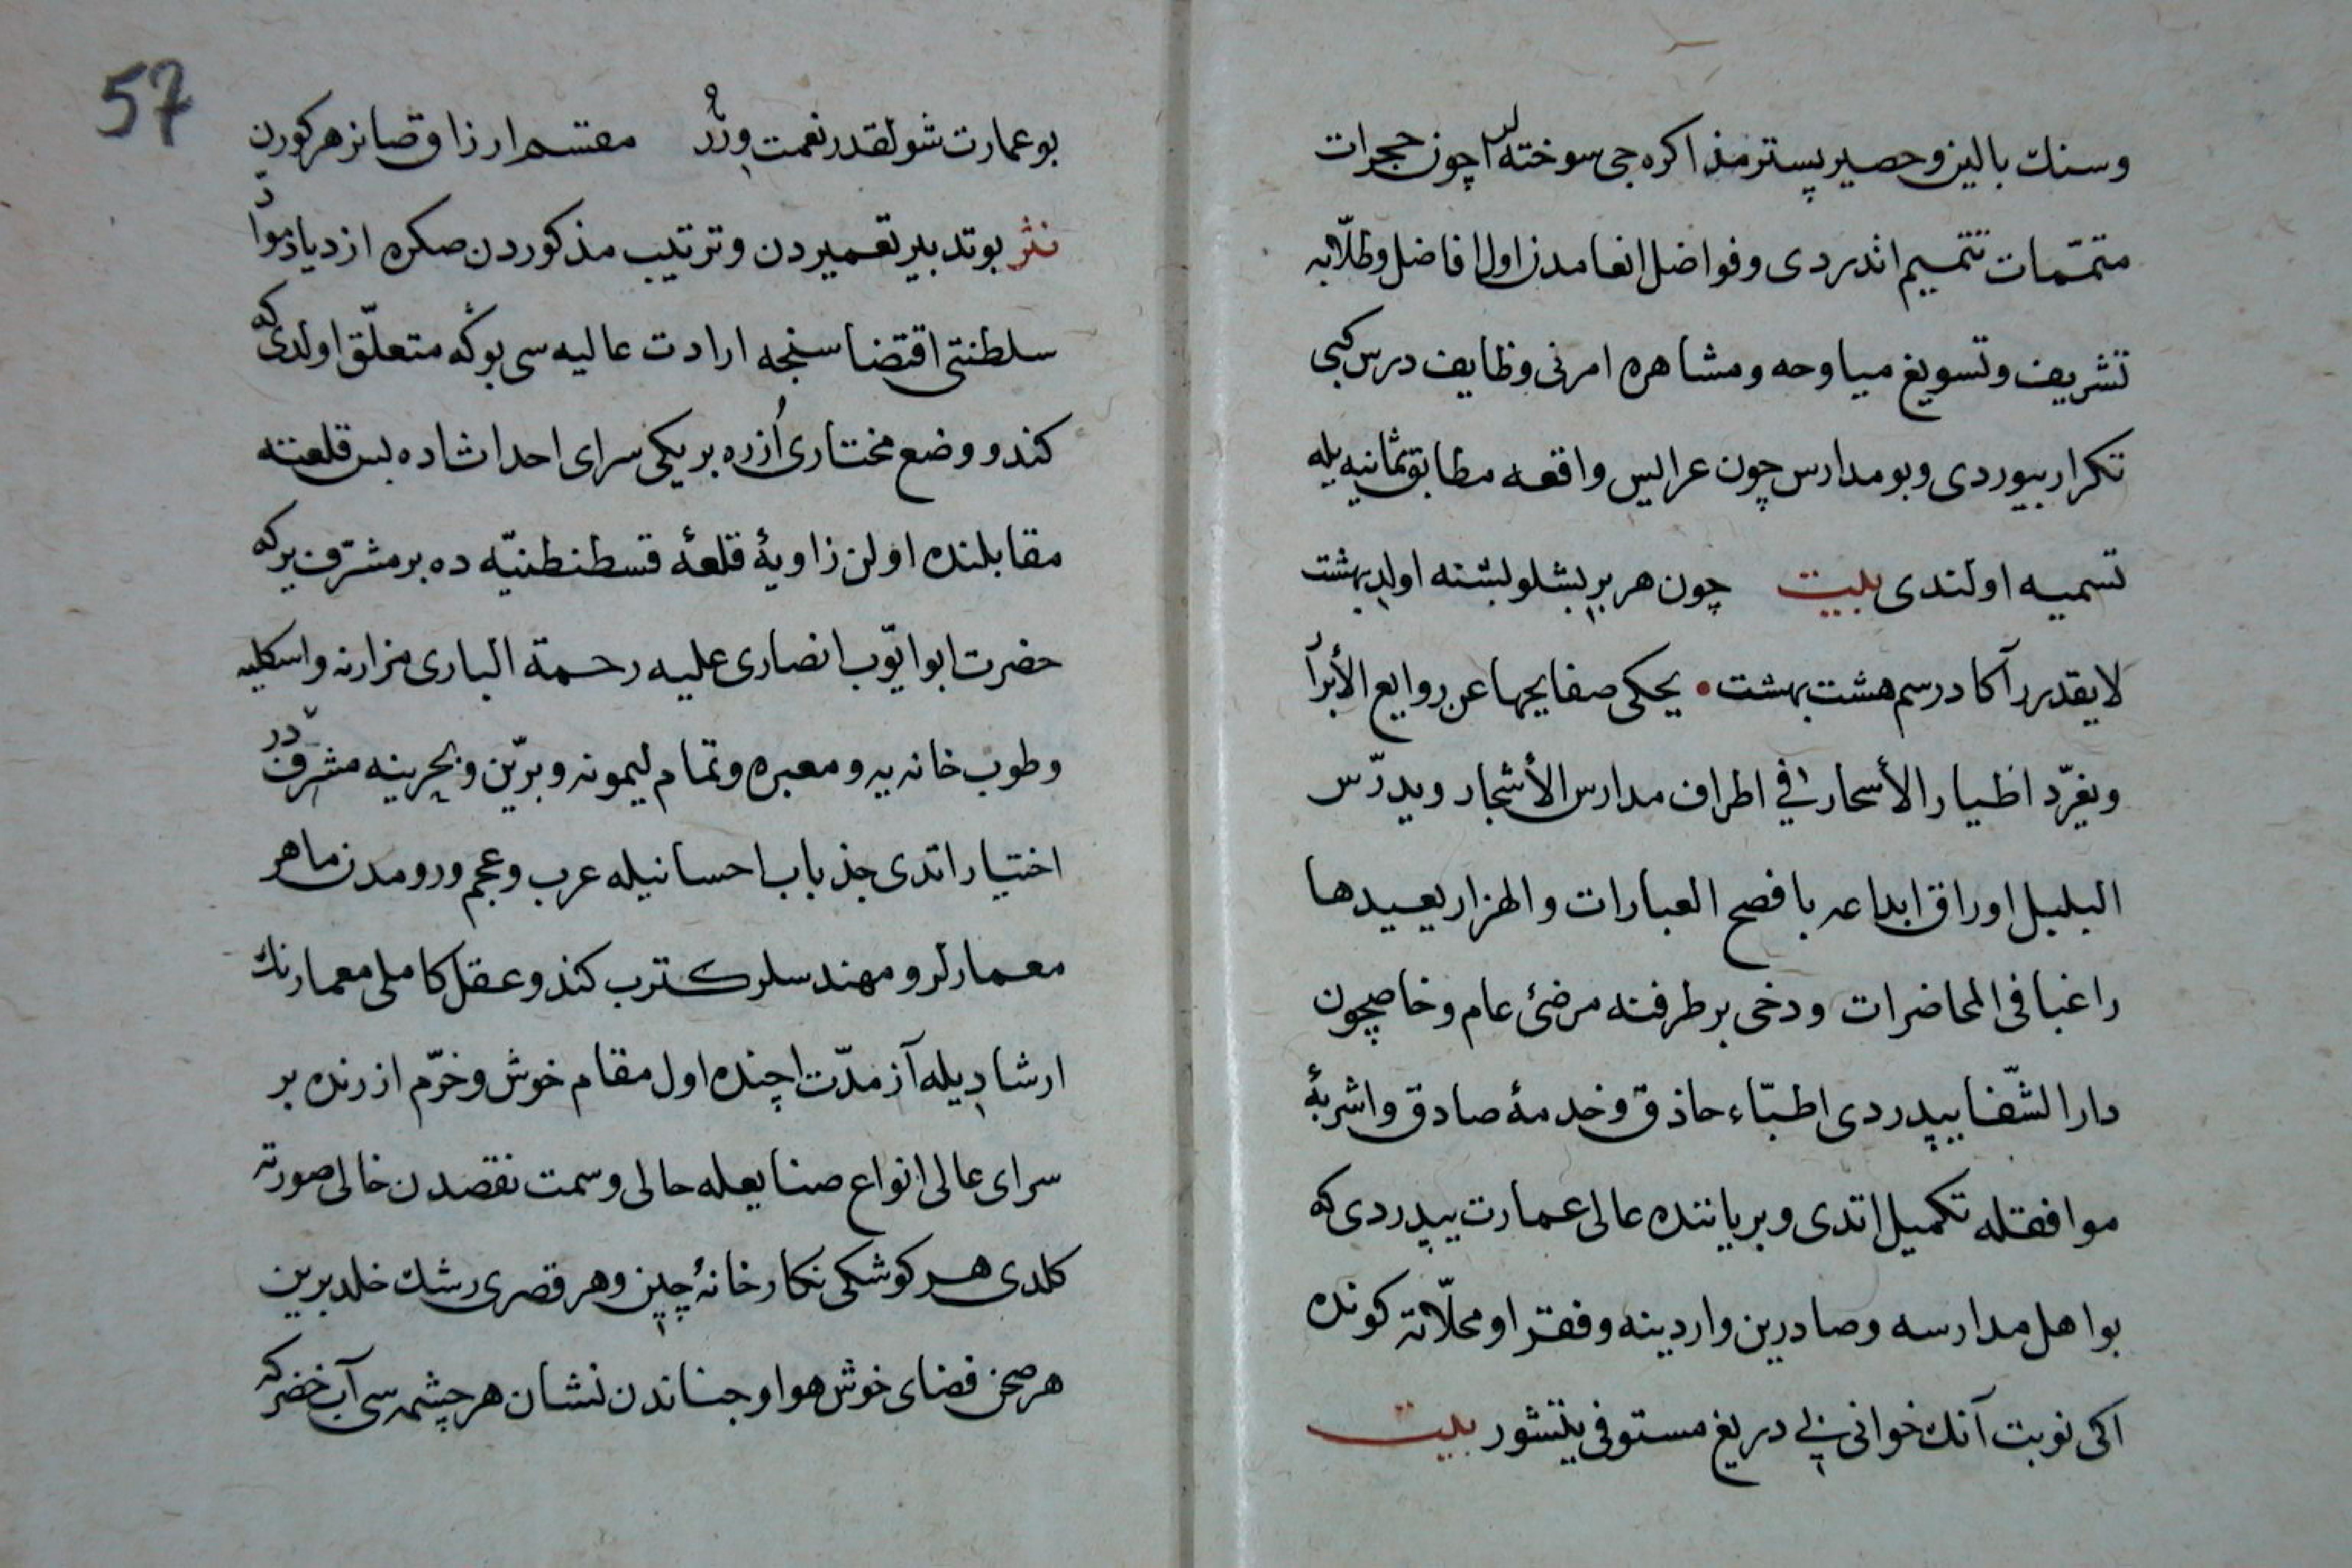 وسنك بالين وحصير پستر مذاكره جی سوخته لر اچون حجرات
متمّمات تتميم اتدردی وفواضل انعامدن اول افاضل وطلّابه
تشريف وتسويغ مياوحه ومشاهره امرنی وظايف درس كبی
تكرار بيوردی وبو مدارس چون عرايس واقعه مطابق ثمانيه يله
تسميه اولندی بيت چون هر بر بشلو بشنه اولد بهشت
لا يقدر رآكا درسم هشت بهشت • يحكی صفايحها عن روايع الأبرا
ويغرّد اظيار الأسحار في اطراف مدارس الأشجار ويدرّس
البلبل اوراق ابداعه بافصح العبارات والهزار يعيدها
راغبا فی المحاضرات ودخی بر طرفنه مرضیٔ عام وخاصچون
دار الشّفا يپدردی اطبّاء حاذق وخدمهٔ صادق واشربهٔ
موافقله تكميل اتدی وبر ياننده عالی عمارت يپدردی كه
بو اهل مدارسه وصادرين وارد ينه وفقرا ومحلّاته كونده
اكی نوبت آنك خوانی بی دريغ مستوفی يتشور بيت
57
بو عمارت شولقدر نعمت ورر مقسم ارزاق صانر هر كورن
نثر بو تدبير تعميردن وترتيب مذكوردن صكره ازدياد مواد
سلطنتی اقتضا سنجه ارادت عاليه سی بوكه متعلّق اولدی كه
كندو وضع مختاری اُزره بر يكی سرای احداث اده بس قلعتنه
مقابلنده اولن زاويهٔ قلعهٔ قسطنطنيّه ده بر مشرف ير كه
حضرت ابو ايّوب انصاری عليه رحمة الباری مزارنه واسكليه
وطوب خانه يه ومعبره وتمام ليمونه وبرّين وبحرينه مشرفدر
اختيار اتدی جذباب احسانيله عرب وعجم ورومدن ماهر
معمارلر ومهندسلر كترب كندو عقل كاملی معمارنك
ارشاديله آز مدّت اچنده اول مقام خوش وخرّم ازرنده بر
سرای عالی انواع صنايعله حالی وسمت نقصدن خالی صورته
كلدی هر كوشكی نكارخانهٔ چين وهر قصری رشك خلد برين
هر صحن فضای خوش هوا وجناندن نشان هر چشمه سی آب خضركه